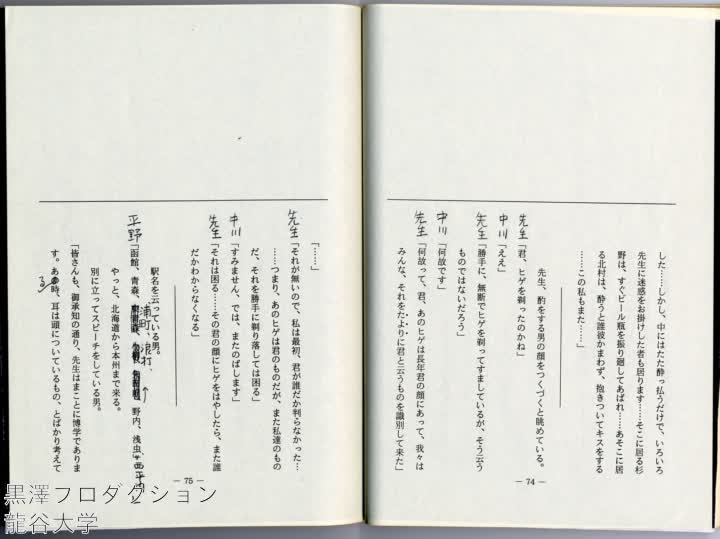 した……しかし、中にはただ酔っ払うだけで、いろいろ
先生に迷惑をお掛けした者も居ります……そこに居る杉
野は、すぐビール瓶を振り廻してあばれ……あそこに居
る北村は、酔うと誰彼かまわず、抱きついてキスをする
……この私もまた……」
先生、酌をする男の顔をつくづくと眺めている。
先生「君、ヒゲを剃ったのかね」
中川「ええ」
先生「勝手に、無断でヒゲを剃ってすましているが、そう云う
ものではないだろう」
中川「何故です」
先生「何故って、君、あのヒゲは長年君の顔にあって、我々は
みんな、それをたよりに君と云うものを識別して来た」
— 74 —
「……」
先生「それが無いので、私は最初、君が誰だか判らなかった…
…つまり、あのヒゲは君のものだが、また私達のもの
だ、それを勝手に剃り落しては困る」
中川「すみません、では、またのばします」
先生「それは困る……その君の顔にヒゲをはやしたら、また誰
だかわからなくなる」
駅名を云っている男。
浦町、浪打、
平野「函館、青森、野内、浅虫、西平内
やっと、北海道から本州まで来る。
別に立ってスピーチをしている男。
「皆さんも、御承知の通り、先生はまことに博学でありま
す。ある時、耳は頭についているもの、とばかり考えて
— 75 —
黒澤プロダクション
龍谷大学